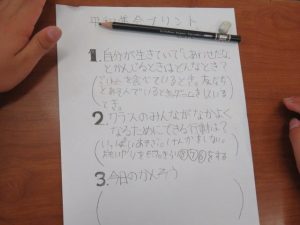 平和集会プリント
1. 自分が生きていて「しあわせだな」
とかんじるときはどんなとき？
(ごはんを食べているとき。友だち
とあそんでいるとき。ゲームをしている
とき。
2. クラスのみんながなかよく
なるためにできる行動は？
いっぱいあそぶ。けんかをしない。
をする
3. 今日のかんそう